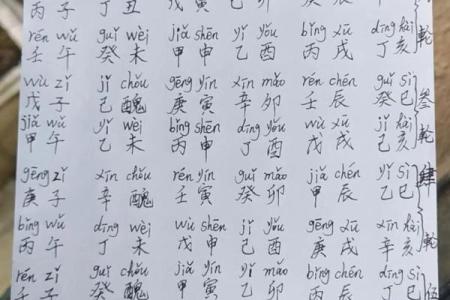 丙子 丁丑
rén wǔ guǐ wèi jiǎ shēn yǐ yǒu bǐng xū dīng hài
壬午 癸未 甲申 乙酉 丙戌 丁亥 乾
wù zǐ jǐ chǒu gēng yín xīn mǎo rén chén guǐ sì
戊子 己醜 庚寅 辛卯 壬辰 癸巳 叁
jiǎ wǔ yǐ wèi bǐng shēn dīng yǒu wù xū jǐ hài
甲午 乙未 丙申 丁酉 戊戌 己亥 乾
gēng zǐ xīn chǒu rén yín guǐ mǎo jiǎ chén yǐ sì
庚子 辛醜 壬寅 癸卯 甲辰 乙巳 肆
bǐng wǔ dīng wèi wù shēn jǐ yǒu gēng xū xīn hài
丙午 丁未 戊申 己酉 庚戌 辛亥 乾
rén zǐ guǐ chǒu jiǎ yín yǐ mǎo bǐng chén dīng sì
壬子 癸醜 甲寅 乙卯 丙辰 丁巳 伍